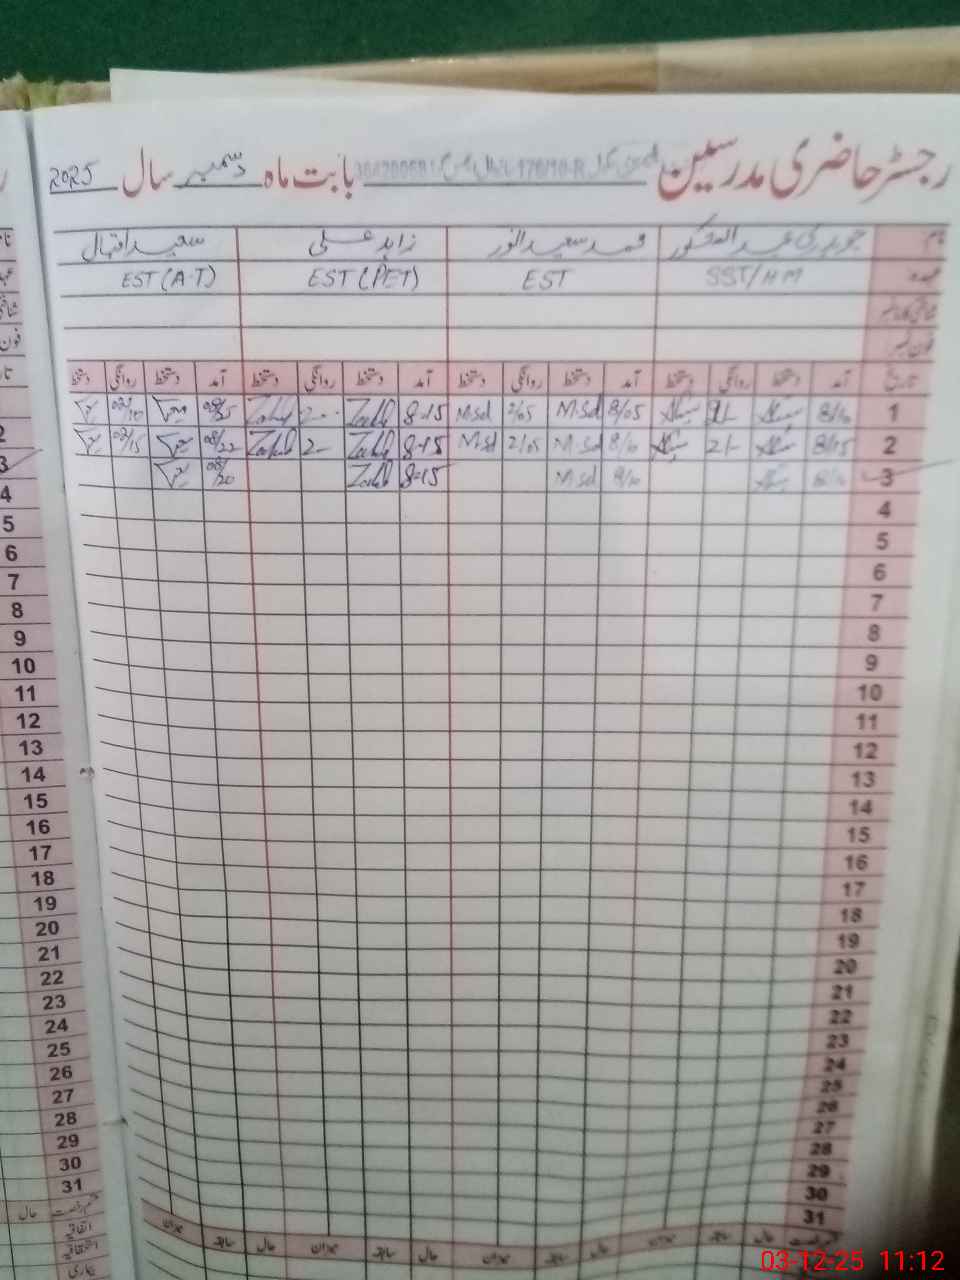 رجسٹر حاضری مدرسین بابت ماہ دسمبر سال 2025
نام چوہدری عبدالغفور محمد سعید انور زاہد علی سعید اقبال
عہدہ SST/HM EST EST (PET) EST (A-T)
شناختی کارڈ نمبر
فون نمبر
تاریخ آمد دستخط روانگی دستخط آمد دستخط روانگی دستخط آمد دستخط روانگی دستخط آمد دستخط روانگی دستخط
1 8/10 2/- 8/05 M.Sd 2/05 M.Sd 8-15 Zahid 2-- Zahid 08/25 02/10
2 8/15 2/- 8/10 M.Sd 2/05 M.Sd 8-15 Zahid 2- Zahid 08/22 02/15
3 8/10 8/10 M.Sd 8-15 Zahid 08/20
4
5
6
7
8
9
10
11
12
13
14
15
16
17
18
19
20
21
22
23
24
25
26
27
28
29
30
31
حال سابقہ میزان حال سابقہ میزان حال سابقہ میزان حال سابقہ میزان
2
3
4
5
6
7
8
9
10
11
12
13
14
15
16
17
18
19
20
21
22
23
24
25
26
27
28
29
30
31
قسم رخصت حال
اتفاقیہ
استحقاقیہ
بیماری
03-12-25 11:12